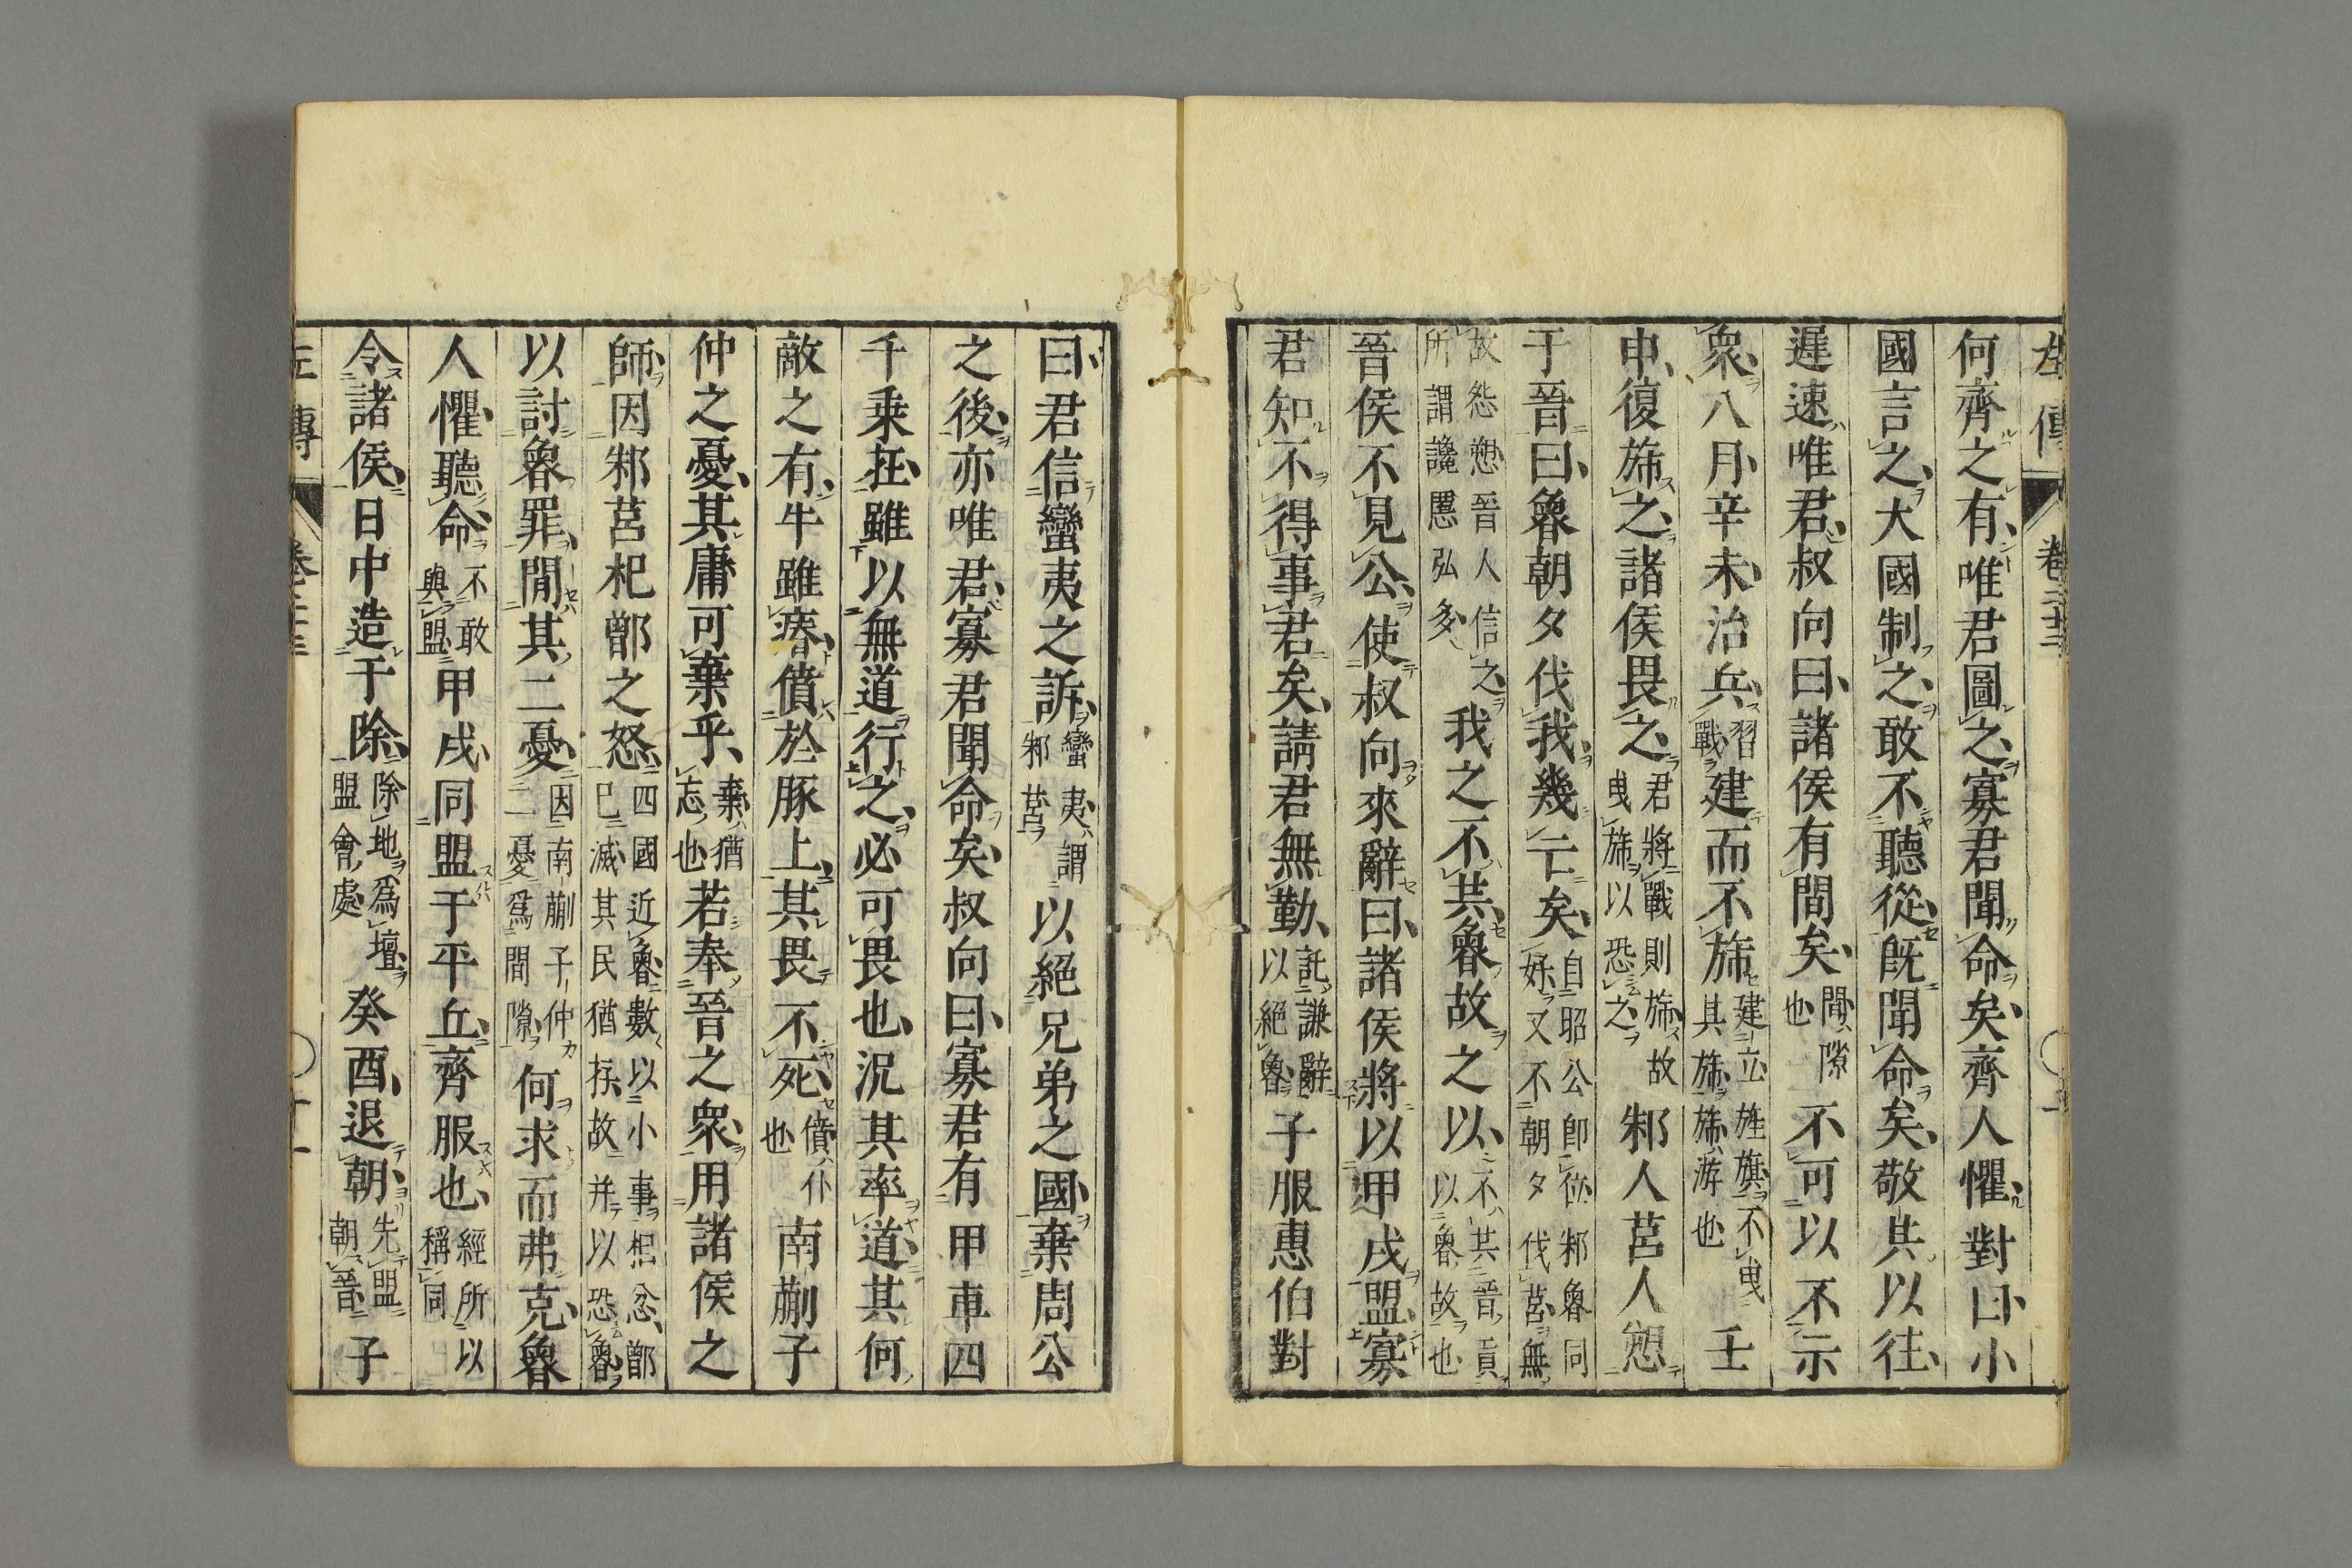 左傳 卷二十三
何齊之有唯君圖之寡君聞命矣齊人懼對曰小
國言之大國制之敢不聽從既聞命矣敬共以往
遲速唯君叔向曰諸侯有間矣間隙也不可以不示
衆八月辛未治兵習戰建而不旆建立旌旗不曳其旆旆游也壬
申復旆之諸侯畏之君將戰則旆故曳旆以恐之邾人莒人愬
于晉曰魯朝夕伐我幾亡矣自昭公即位邾魯同好又不朝夕伐莒無
故怨愬晉人信之所謂讒慝弘多我之不共魯故之以不共晉貢以魯故也
晉侯不見公使叔向來辭曰諸侯將以甲戌盟寡
君知不得事君矣請君無勤託謙辭以絕魯子服惠伯對
曰君信蠻夷之訴蠻夷謂邾莒以絕兄弟之國棄周公
之後亦唯君寡君聞命矣叔向曰寡君有甲車四
千乗在雖以無道行之必可畏也況其率道其何
敵之有牛雖瘠僨於豚上其畏不死僨仆也南蒯子
仲之憂其庸可棄乎棄猶忘也若奉晉之衆用諸侯之
師因邾莒杞鄫之怒四國近魯數以小事相忿鄫已滅其民猶存故并以恐魯
以討魯罪間其二憂因南蒯子仲二憂爲間隙何求而弗克魯
人懼聽命不敢與盟甲戌同盟于平丘齊服也經所以稱同
令諸侯日中造于除除地爲壇盟會處癸酉退朝先盟朝晉子
左傳 卷二十三 十一